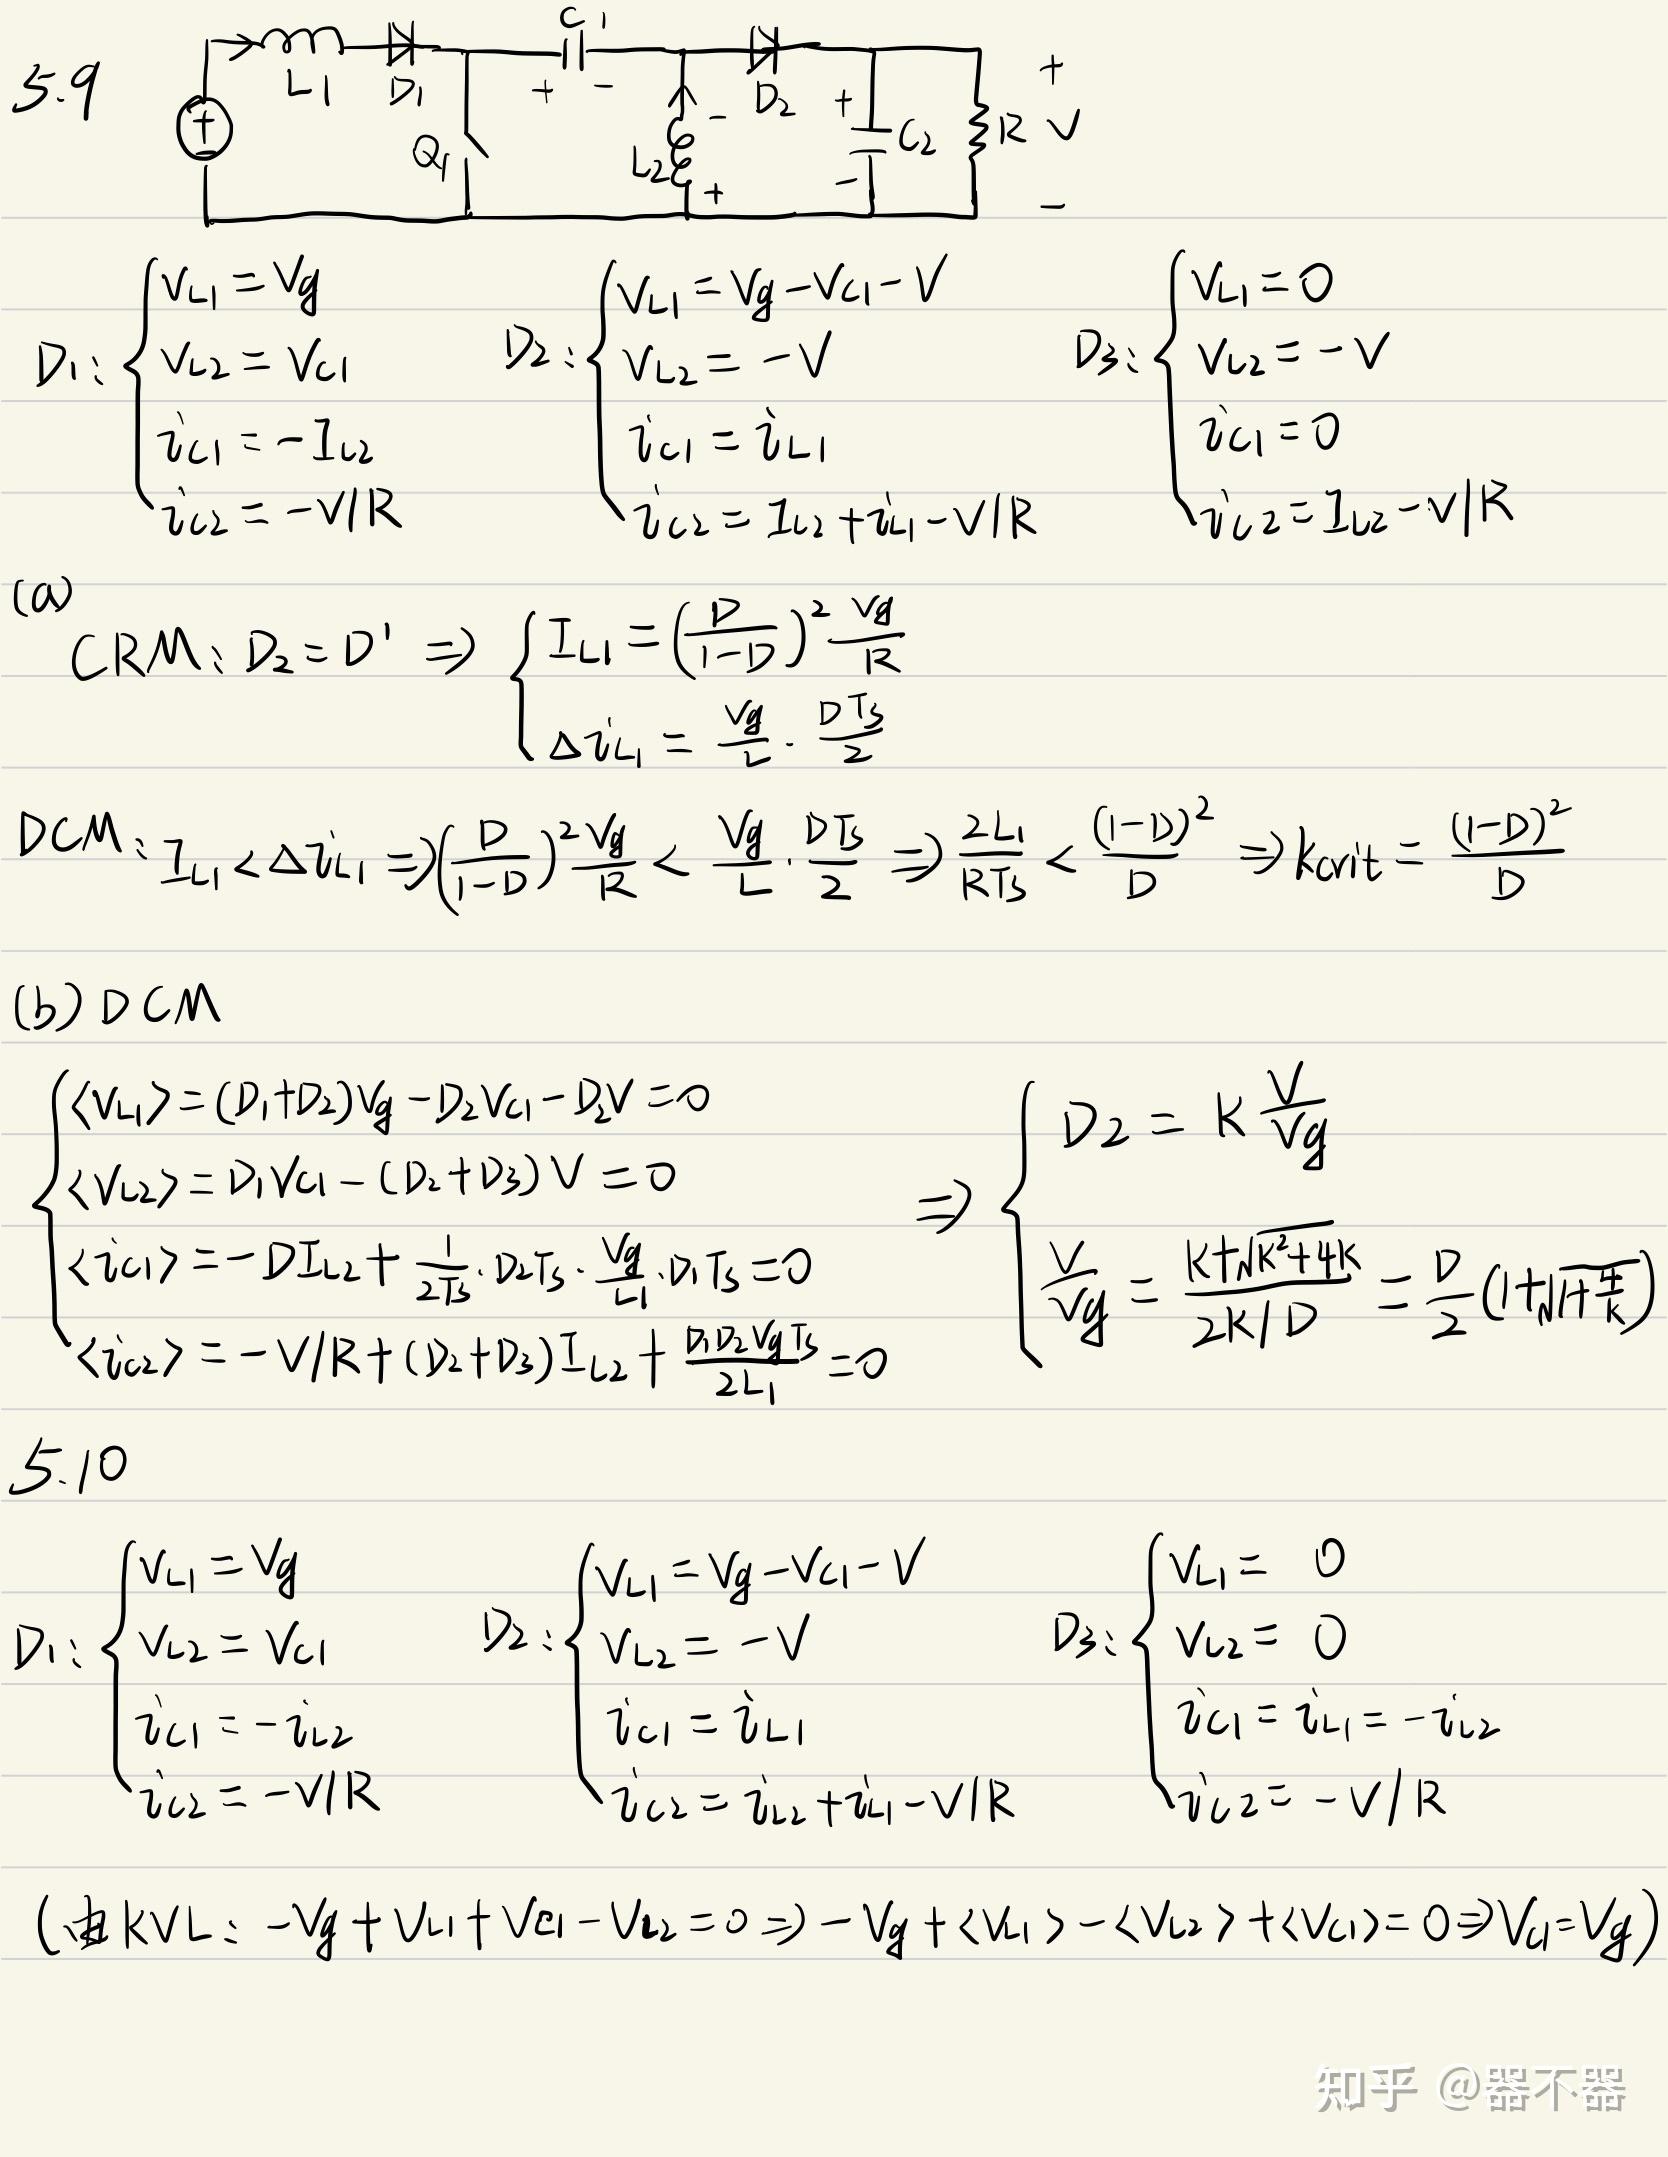 5.9
L1 D1 C1 + - Q1 L2 - + D2 + - C2 R + V -
D1: { VL1 = Vg
VL2 = VC1
iC1 = -IL2
iC2 = -V/R
D2: { VL1 = Vg - VC1 - V
VL2 = -V
iC1 = iL1
iC2 = IL2 + iL1 - V/R
D3: { VL1 = 0
VL2 = -V
iC1 = 0
iC2 = IL2 - V/R
(a)
CRM: D2 = D' ⇒ { IL1 = (D/(1-D))² Vg/R
ΔiL1 = Vg/L · DTs/2
DCM: IL1 < ΔiL1 ⇒ (D/(1-D))² Vg/R < Vg/L · DTs/2 ⇒ 2L1/RTs < (1-D)²/D ⇒ kcrit = (1-D)²/D
(b) DCM
{ <VL1> = (D1+D2)Vg - D2VC1 - D2V = 0
<VL2> = D1VC1 - (D2+D3)V = 0
<iC1> = -DIL2 + 1/2Ts · D2Ts · Vg/L1 · D1Ts = 0
<iC2> = -V/R + (D2+D3)IL2 + D1D2VgTs/2L1 = 0
⇒ { D2 = K V/Vg
V/Vg = (K+√(K²+4K))/(2K/D) = D/2 (1+√(1+4/K))
5.10
D1: { VL1 = Vg
VL2 = VC1
iC1 = -iL2
iC2 = -V/R
D2: { VL1 = Vg - VC1 - V
VL2 = -V
iC1 = iL1
iC2 = iL2 + iL1 - V/R
D3: { VL1 = 0
VL2 = 0
iC1 = iL1 = -iL2
iC2 = -V/R
(由KVL: -Vg + VL1 + VC1 - VL2 = 0 ⇒ -Vg + <VL1> - <VL2> + <VC1> = 0 ⇒ VC1 = Vg)
知乎 @器不器